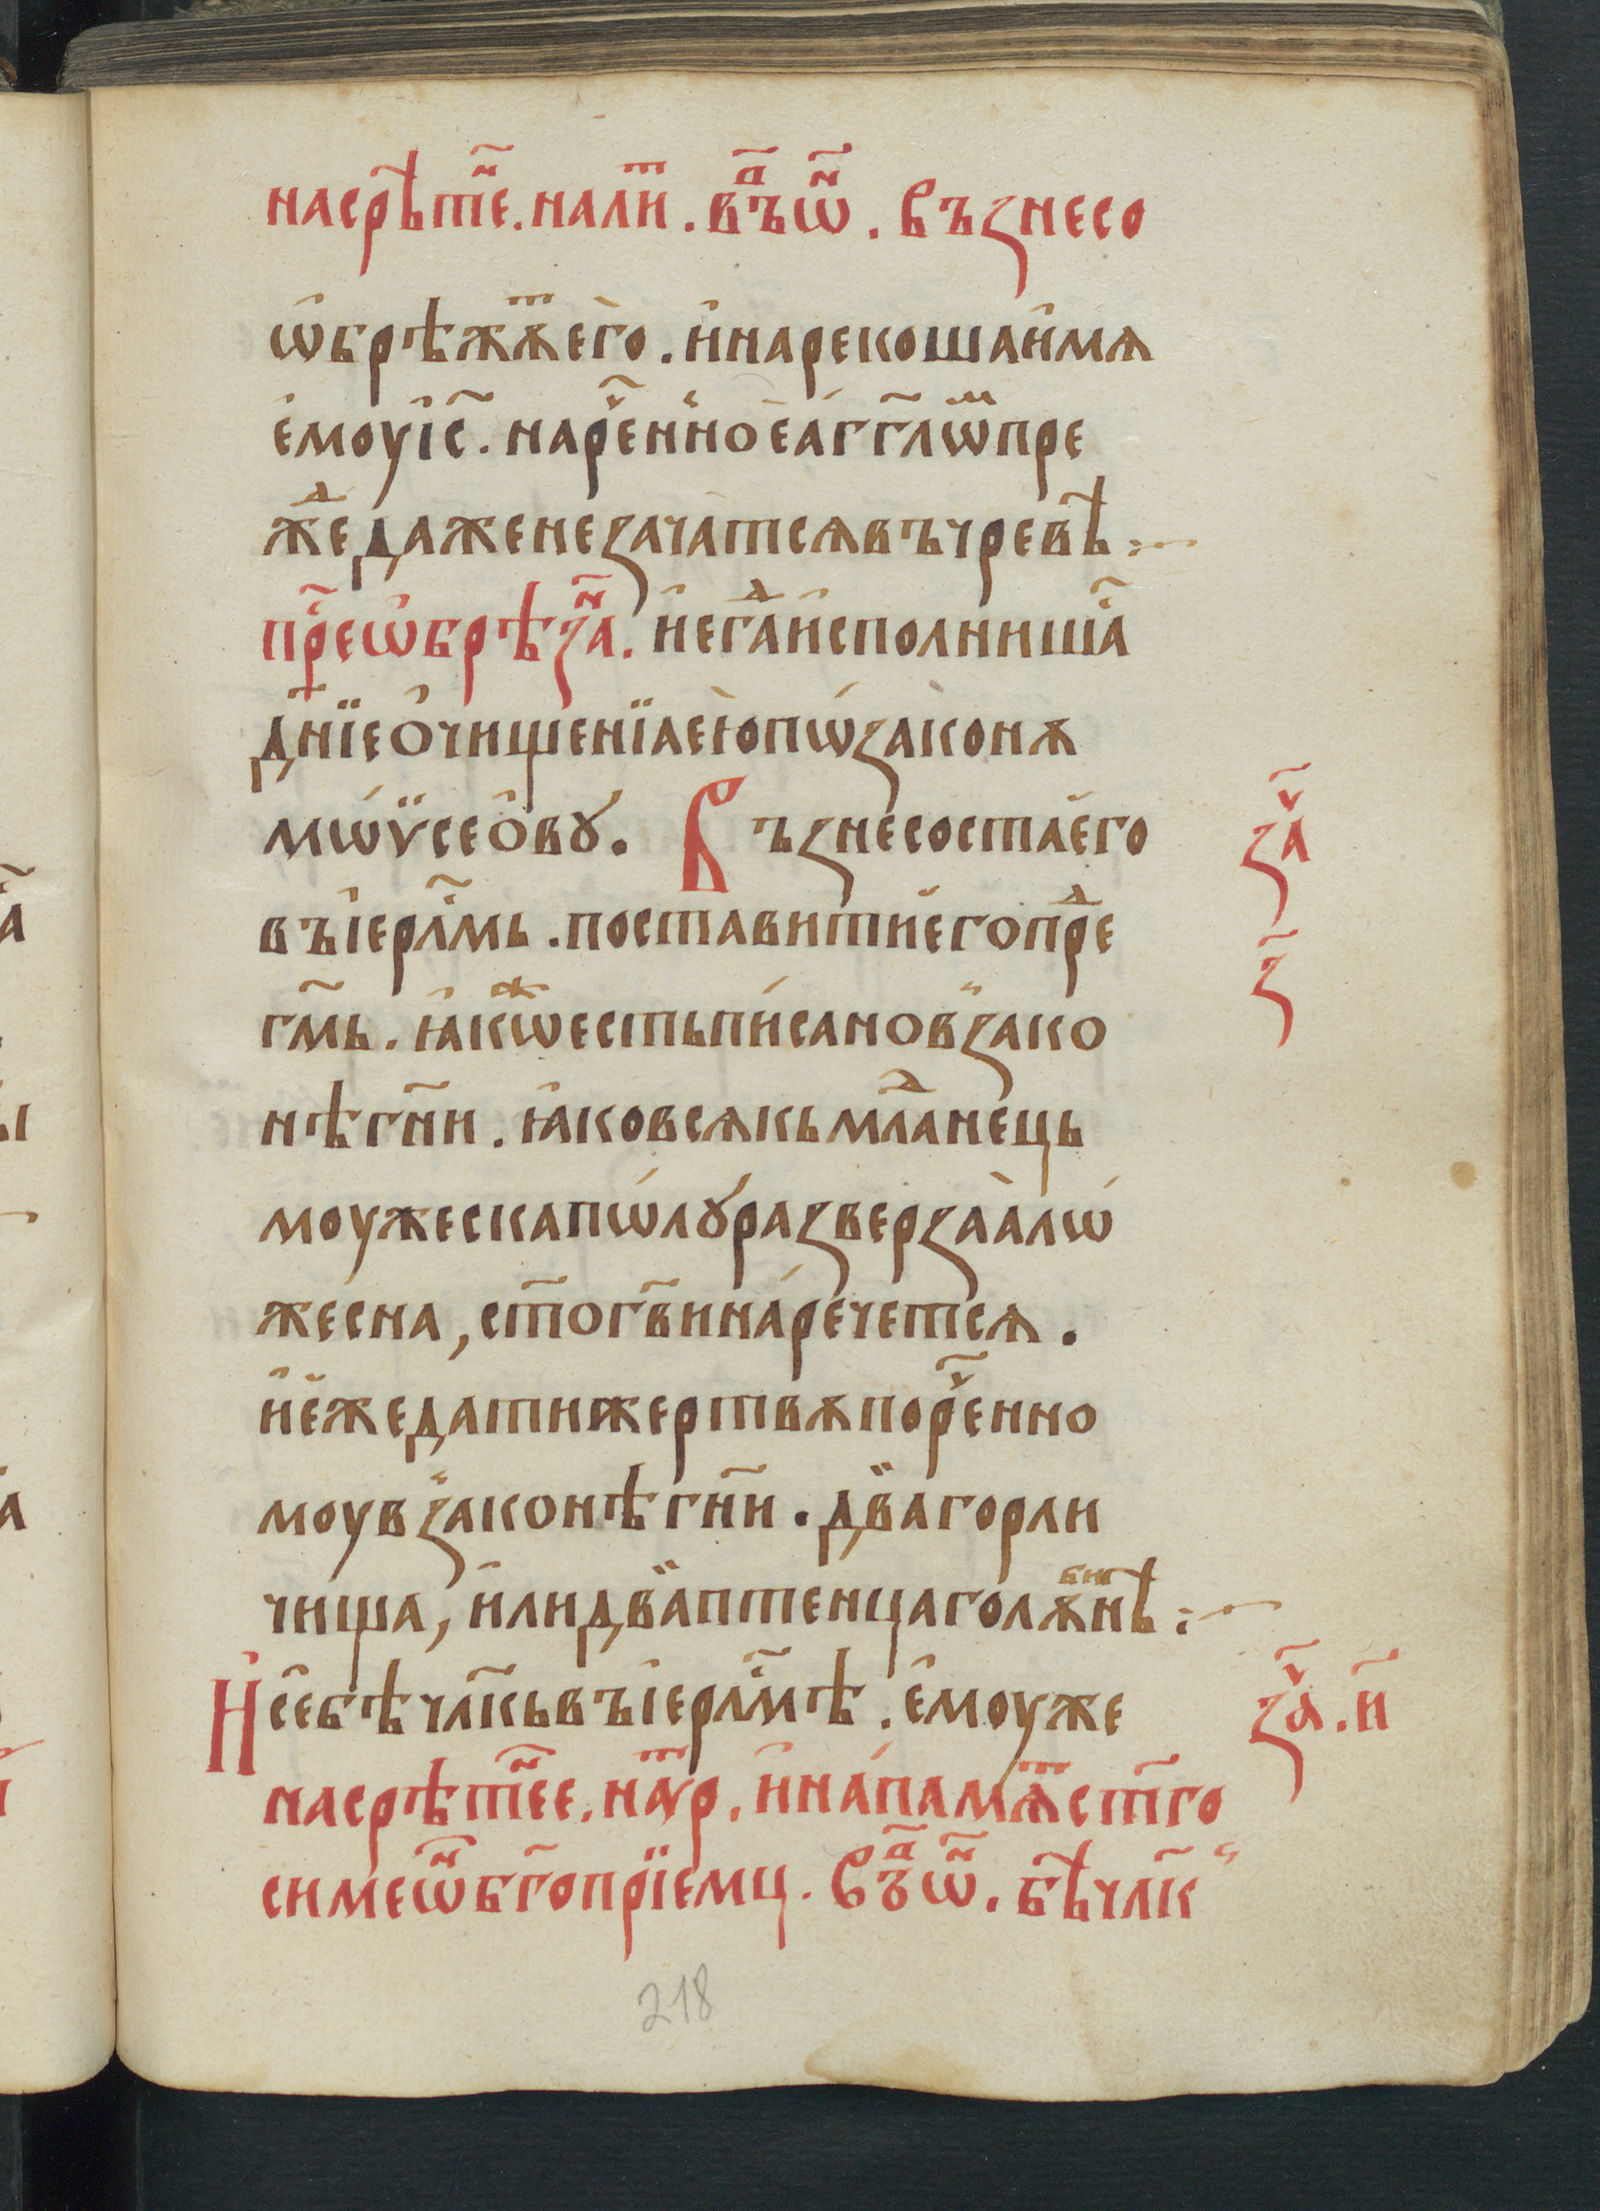 насрѣтⷩ҇е. налиⷮ. въⷣ҇ѡⷩ҇. възнесо
ѡ҆брѣжѫⷮего̀. и҆нарекошаи҆мѧ
є҆моуі҆с҃. нареⷱ҇нноеа҆́гг҃лѡⷨпре
жеⷣдаженезача́тсѧвъчревѣ:~
преⷤѡ҆брѣзаⷩ҇. и҆егⷣаи҆сполнишаⷭ҇
дн҃їео҆чищенїаею̀пѡ́законꙋ
мѡ́ѷсео҆вꙋ. Възнесостаего
въі҆ерлⷭ҇мь. поставитиегопреⷣ
гм҃ь. ꙗ҆кѡⷤестьпи́сановзако
нѣгн҃и. ꙗ҆ковсѧкьмлаⷣнець
моужескапѡ́лꙋразверза̀а̀лѡ́
жесна, ст҃огв҃ина́речетсѧ.
и҆ежедатижертвѫпореⷱ҇нно
моувзаконѣгн҃и. двагорли
чища, и҆лидваптенцаголѫбинѣ:~
И҆себѣчл҃кьвъі҆ерлⷭ҇мѣ. є҆моуже
насрѣтⷩ҇ее. наⷮур. и҆на́памѧⷮст҃го
симеѡⷩ҇бг҃опрїемц. Въⷣ҇ѡⷩ҇. бѣ҃чл҃к
заⷱ҇
з҃
заⷱ҇. и҃
218